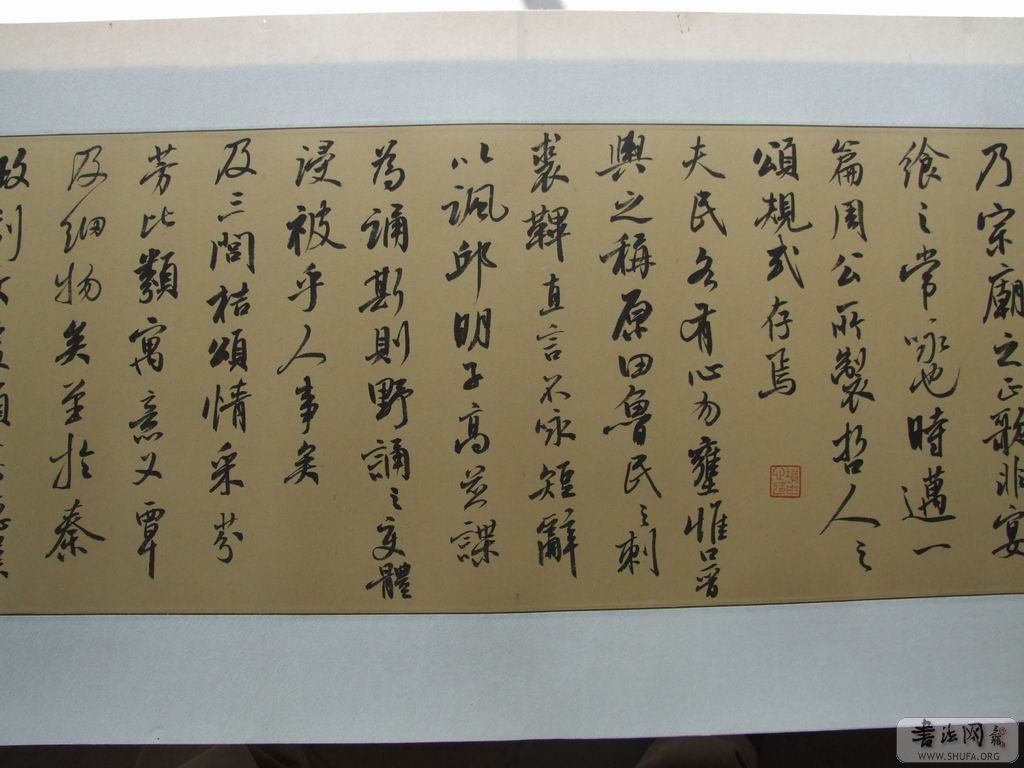 乃宗廟之正歌非宴
飨之常咏也時邁一
篇周公所製哲人之
頌規式存焉
夫民各有心勿壅惟口晉
輿之稱原田魯民之刺
裘鞸直言不咏短辭
以諷邱明子高並諜
為誦斯則野誦之變體
浸被乎人事矣
及三閭桔頌情采芬
芳比類寓意又覃
及細物矣至於秦
政刻文爰頌
書法网
WWW.SHUFA.ORG